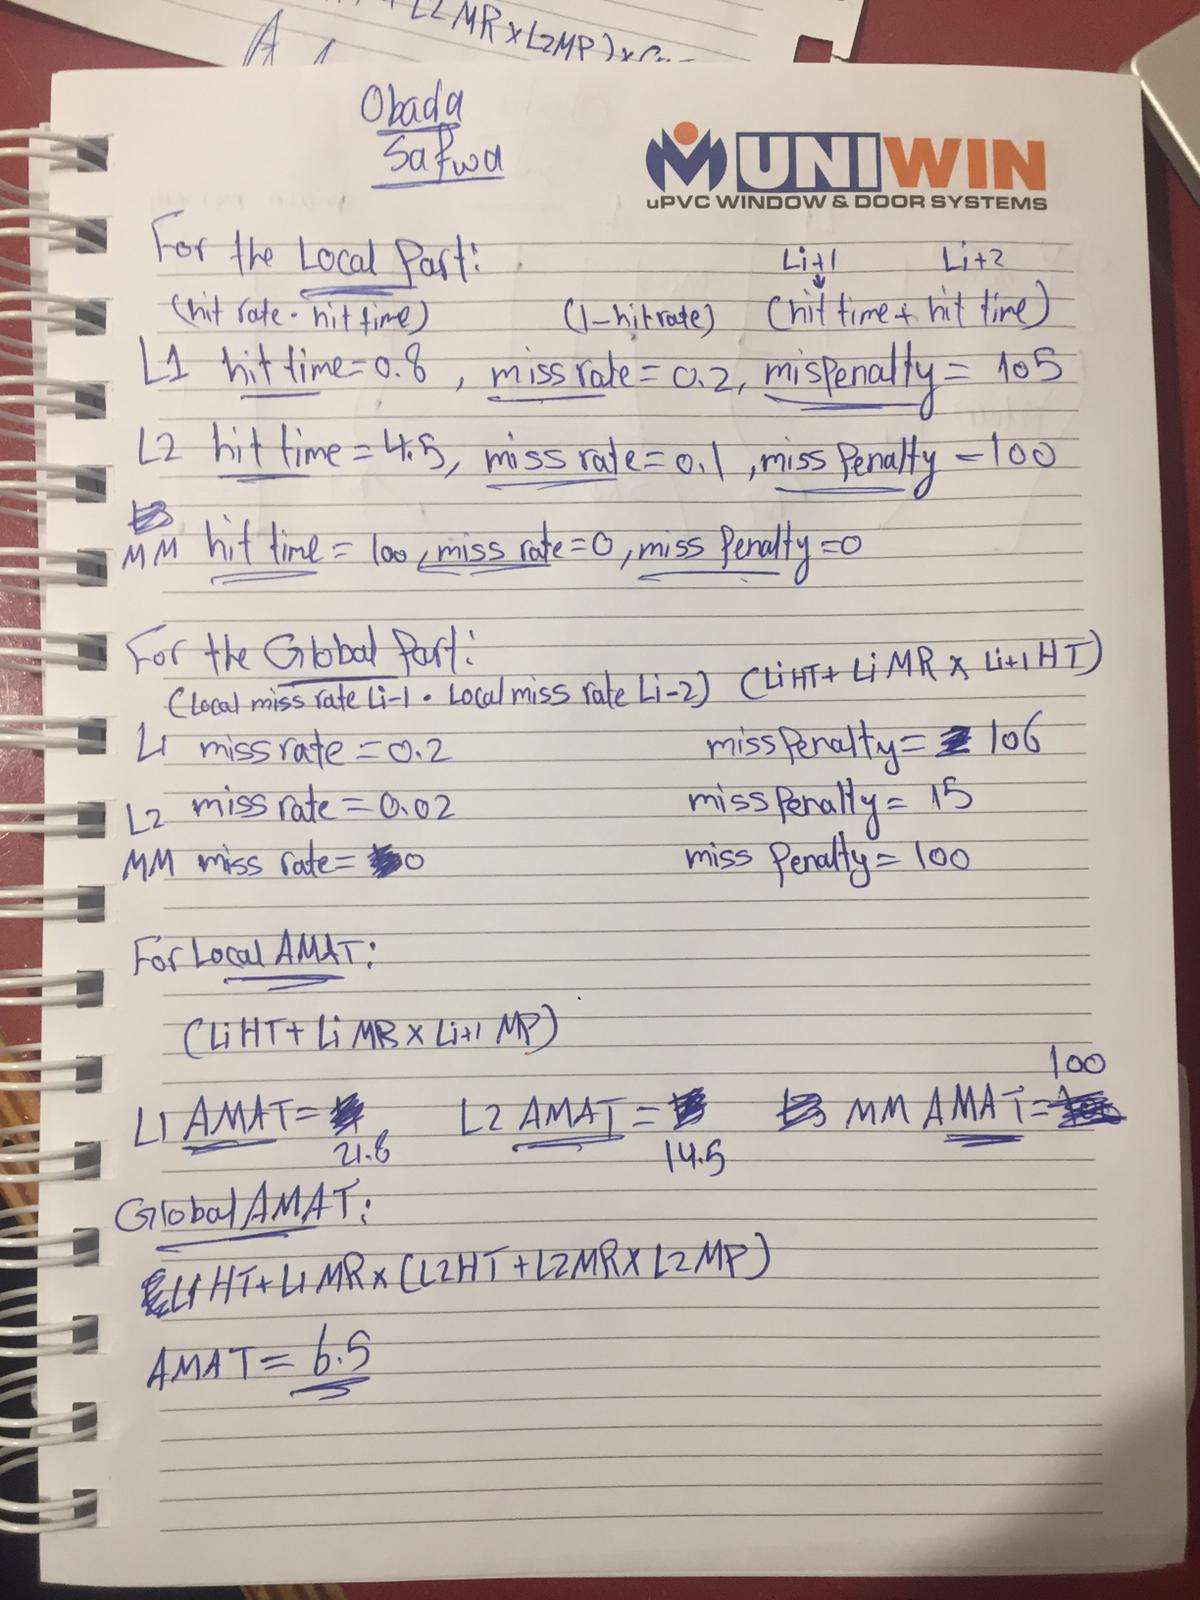 L2MR x L2MP) x
Obada
Safwa
UNIWIN
uPVC WINDOW & DOOR SYSTEMS
For the Local Part:
Li+1 Li+2
(hit rate · hit time) (1-hit rate) (hit time + hit time)
L1 hit time = 0.8 , miss rate = 0.2, misPenalty = 105
L2 hit time = 4.5, miss rate = 0.1 , miss Penalty = 100
MM hit time = 100 , miss rate = 0 , miss Penalty = 0
For the Global Part:
(Local miss rate Li-1 · Local miss rate Li-2) (LiHT + LiMR x Li+1 HT)
L1 miss rate = 0.2 miss Penalty = 106
L2 miss rate = 0.02 miss Penalty = 15
MM miss rate = 0 miss Penalty = 100
For Local AMAT:
(LiHT + Li MR x Li+1 MP)
100
L1 AMAT = L2 AMAT = MM AMAT =
21.8 14.5
Global AMAT:
L1 HT + L1 MR x (L2HT + L2MR x L2MP)
AMAT = 6.5